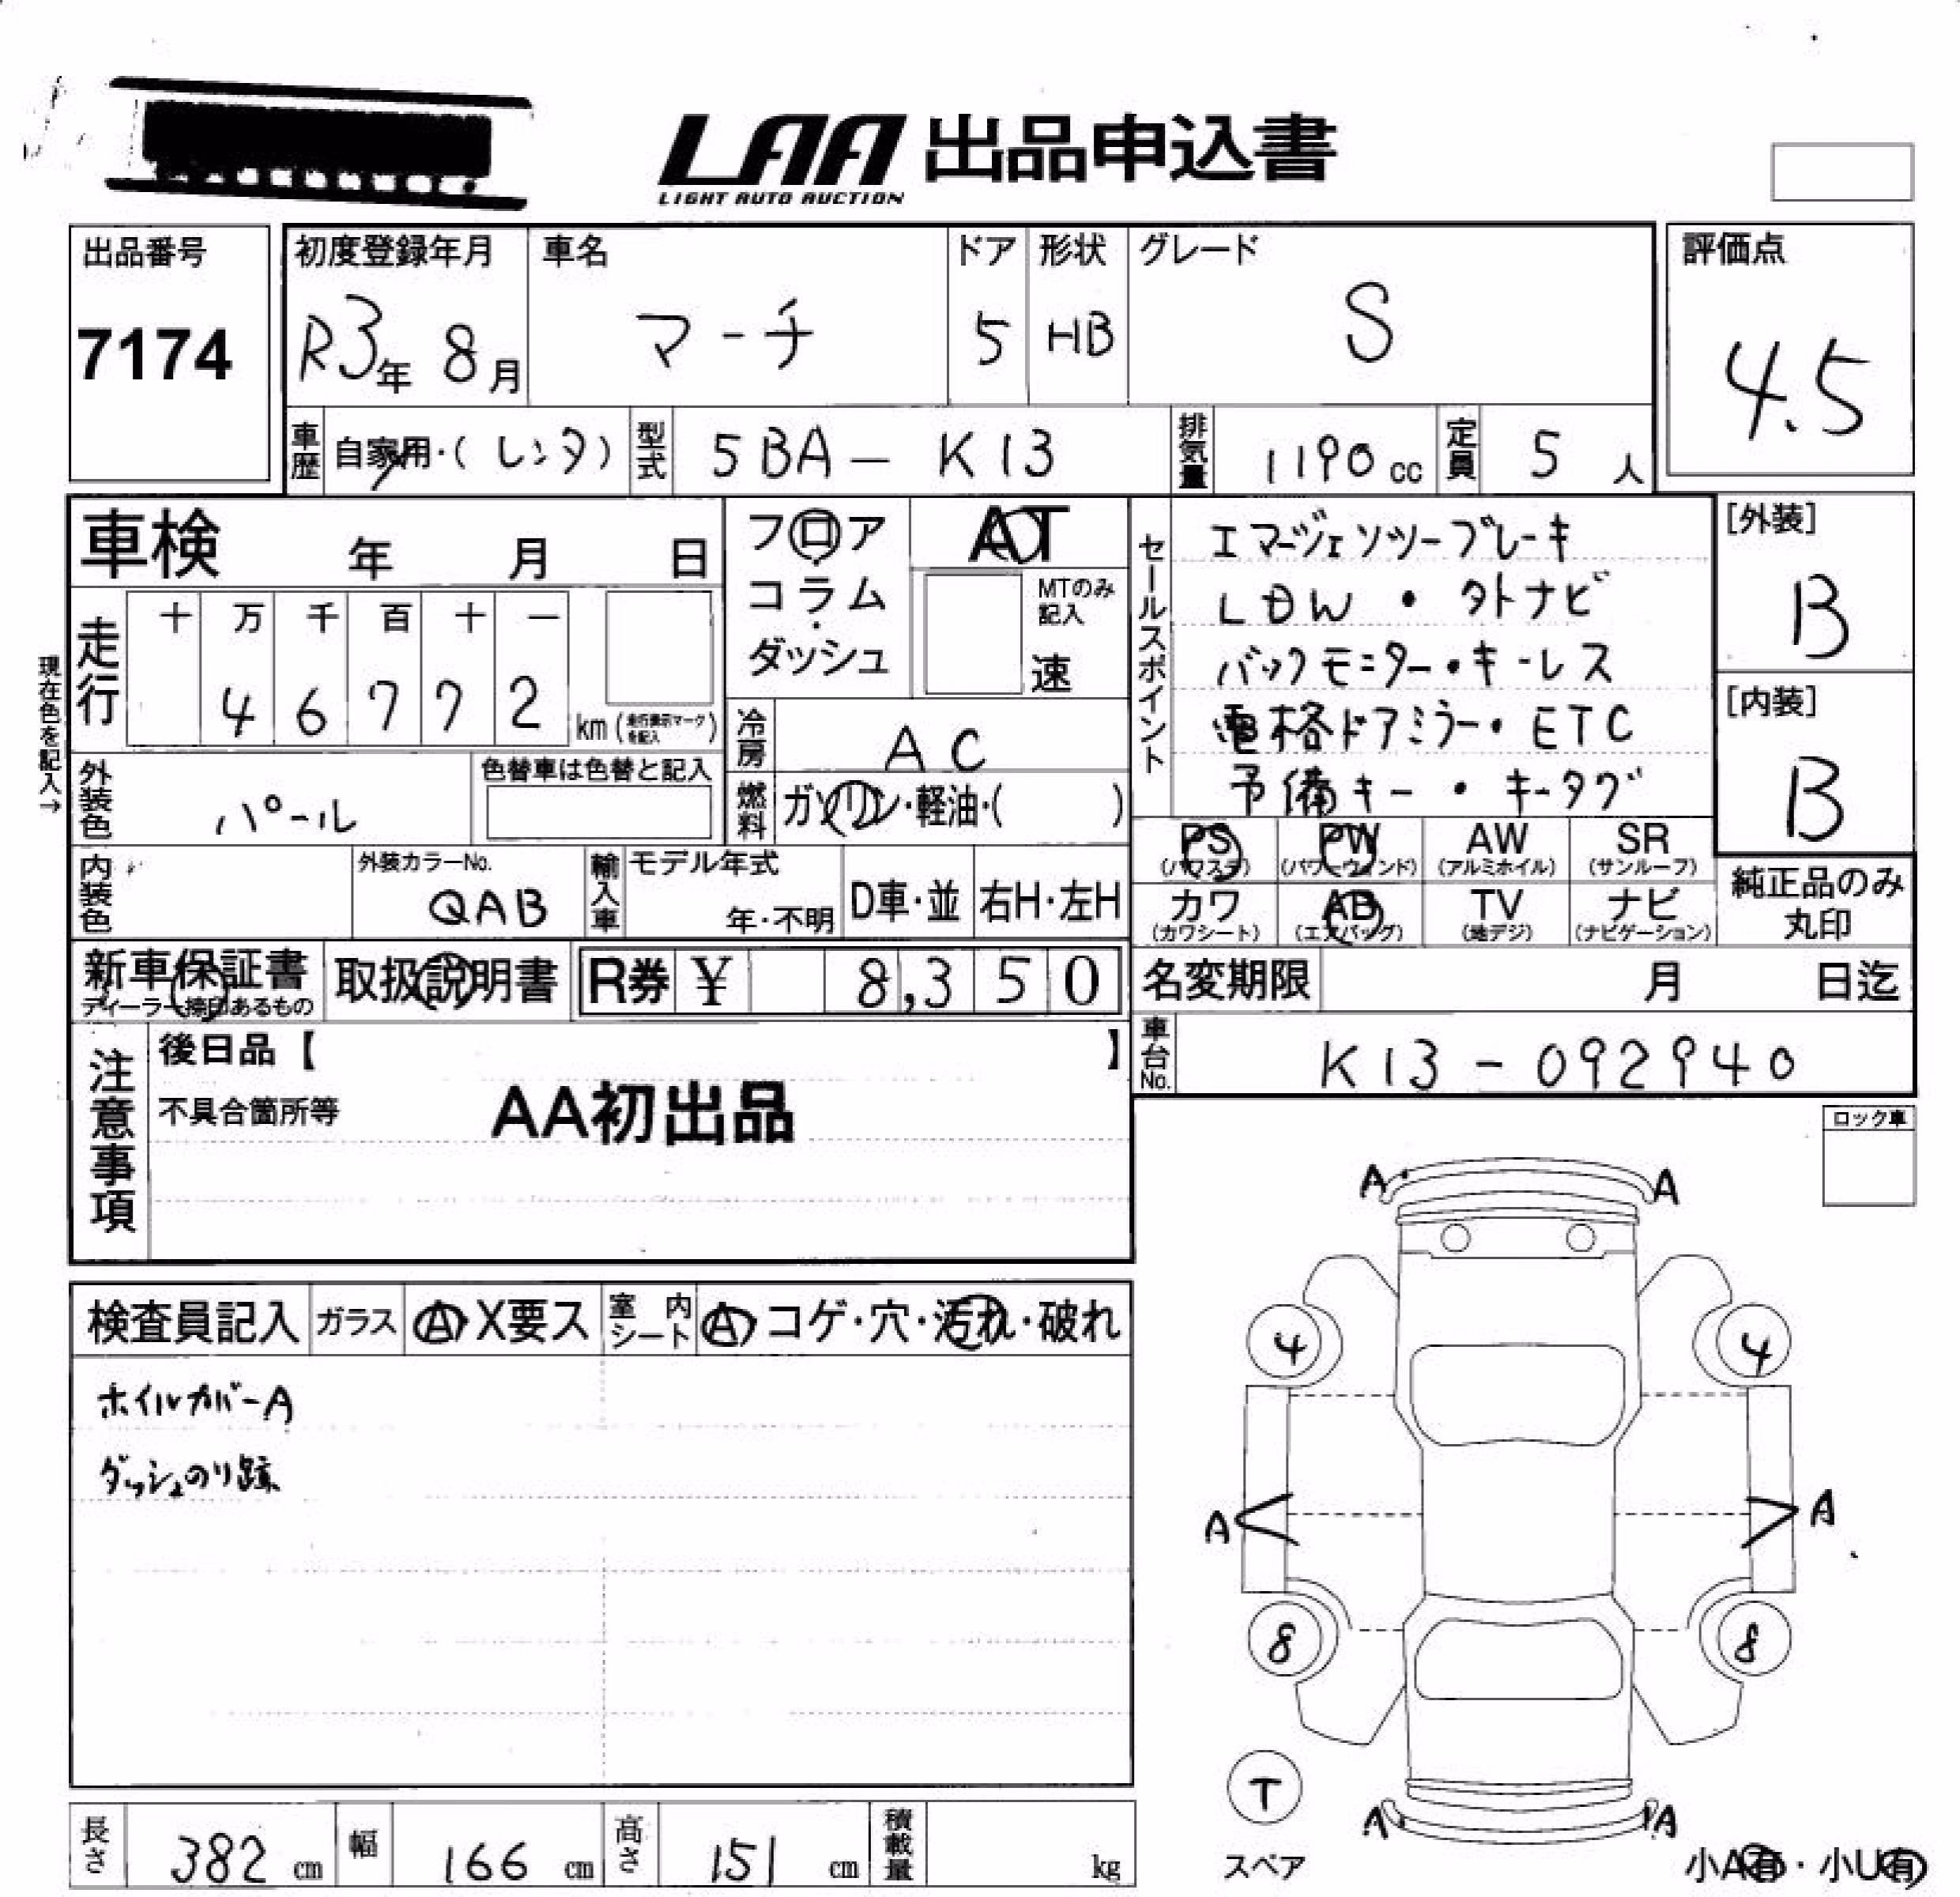 LAA 出品申込書
LIGHT AUTO AUCTION
出品番号
7174
初度登録年月
R3年 8月
車名
マーチ
ドア
5
形状
HB
グレード
S
評価点
4.5
車歴
自家用・(レンタ)
型式
5BA - K13
排気量
1190 cc
定員
5 人
車検 年 月 日
フロア
コラム
ダッシュ
AT
MTのみ
記入
速
セールスポイント
エマージェンツーブレーキ
LDW・タトナビ
バックモニター・キーレス
電格ドアミラー・ETC
予備キー・キータグ
[外装]
B
[内装]
B
現在色を記入→
走行
十 万 千 百 十 一
4 6 7 7 2
km (走行表示マークを記入)
冷房
AC
外装色
パール
色替車は色替と記入
燃料
ガソリン・軽油・( )
PS
(パワステ)
PW
(パワーウィンド)
AW
(アルミホイル)
SR
(サンルーフ)
カワ
(カワシート)
AB
(エアバッグ)
TV
(地デジ)
ナビ
(ナビゲーション)
純正品のみ
丸印
内装色
外装カラーNo.
QAB
輸入車
モデル年式
年・不明
D車・並
右H・左H
新車保証書
ディーラー捺印あるもの
取扱説明書
R券 ¥ 8,350
名変期限 月 日迄
車台No.
K13 - 092940
注意事項
後日品【 】
不具合箇所等
AA初出品
ロック車
A A
検査員記入
ガラス
A・X要ス
室内シート
A・コゲ・穴・汚れ・破れ
ホイルカバーA
ダッシュのり跡
4 4
A A
8 8
T
スペア
A A
小A有・小U有
長さ
382 cm
幅
166 cm
高さ
151 cm
積載量
kg